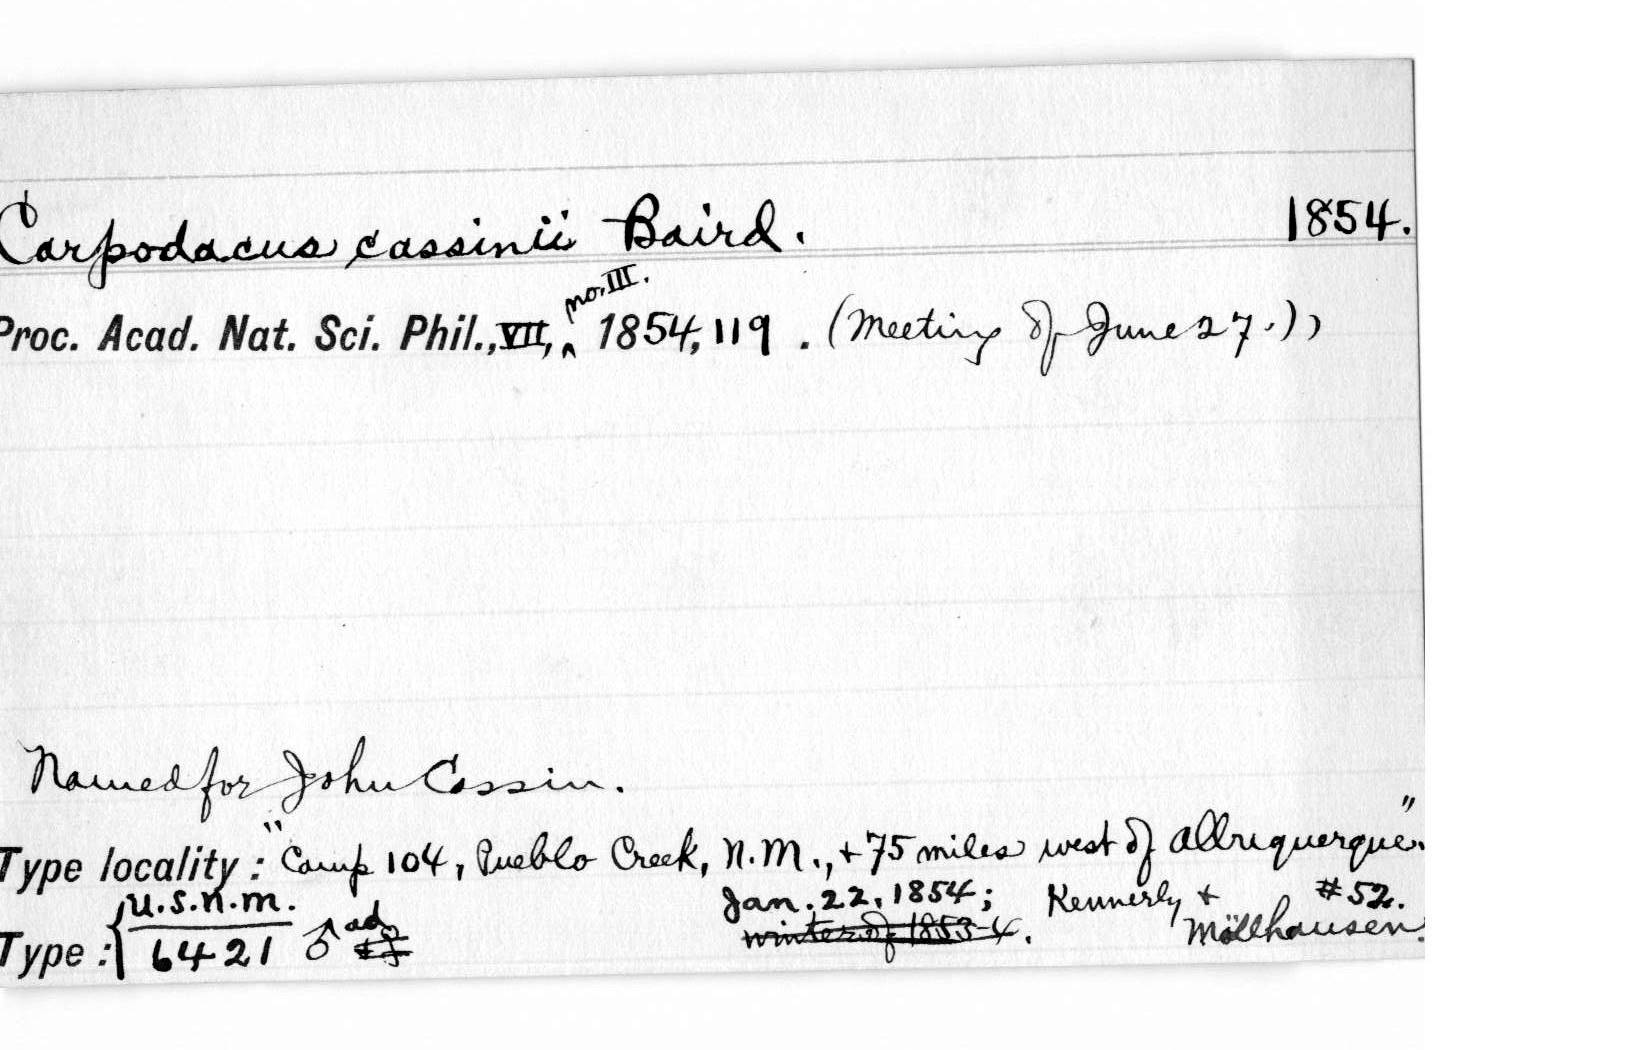 Carpodacus cassinii Baird. 1854.
no. III.
Proc. Acad. Nat. Sci. Phil., VII, ^ 1854, 119 . (Meeting of June 27.))
Named for John Cassin.
Type locality : "Camp 104, Pueblo Creek, N.M., + 75 miles west of Albuquerque".
U.S.N.M. ad Jan. 22, 1854; Kennerly + #52.
Type : 6421 ♂ winter of 1853-4. Möllhausen.